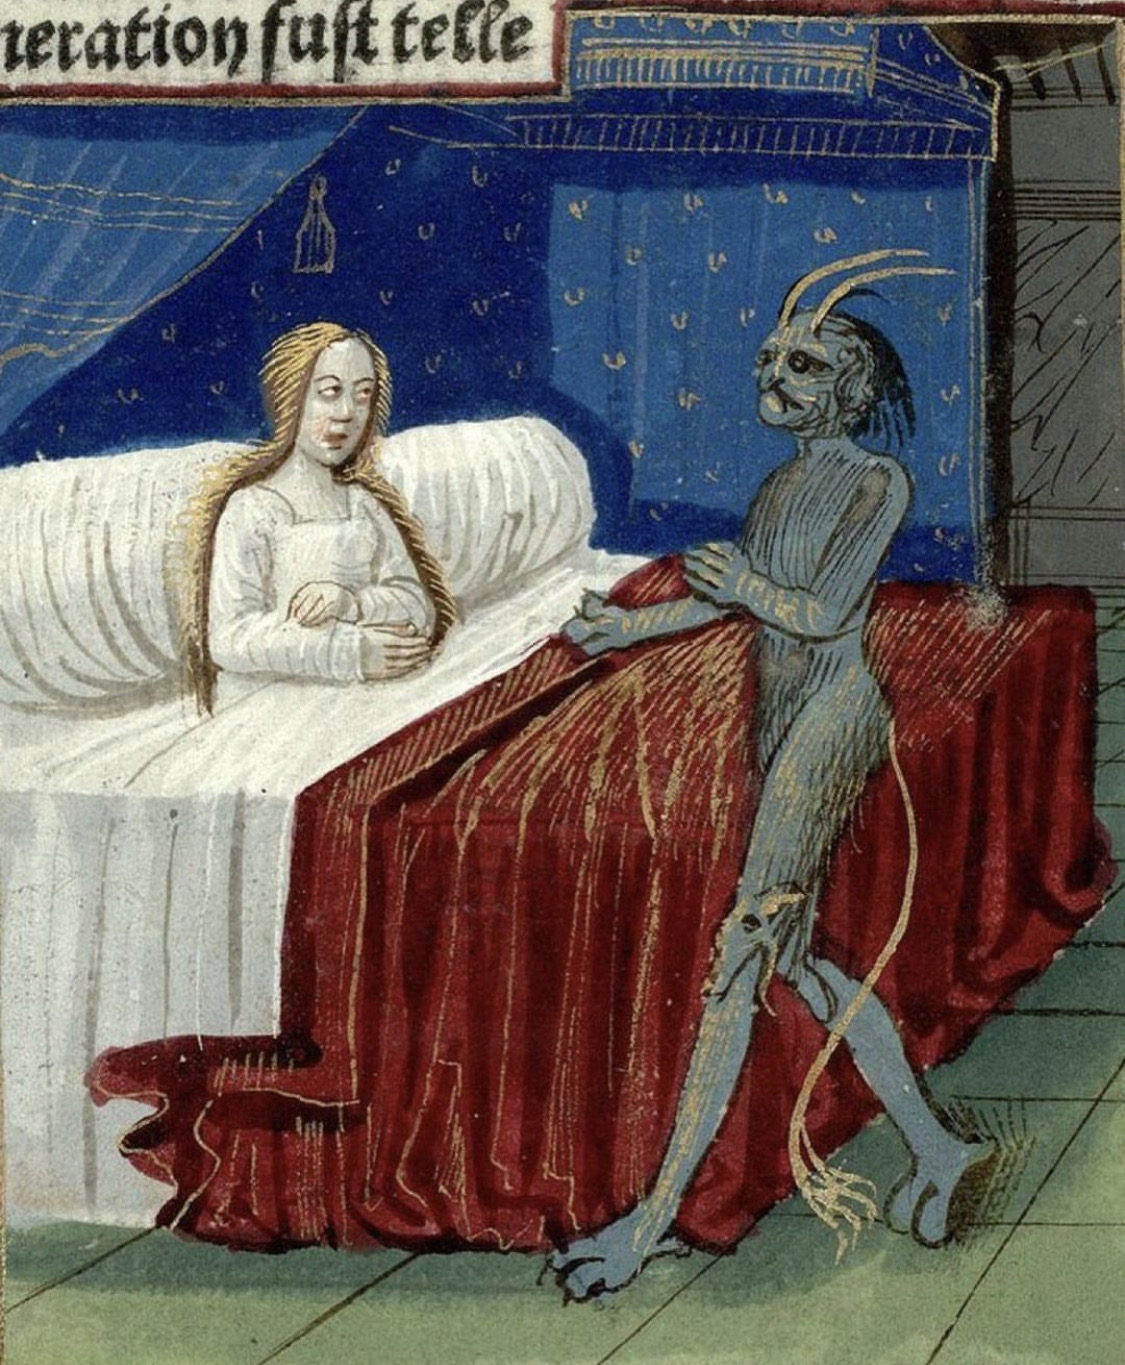 neration fust telle